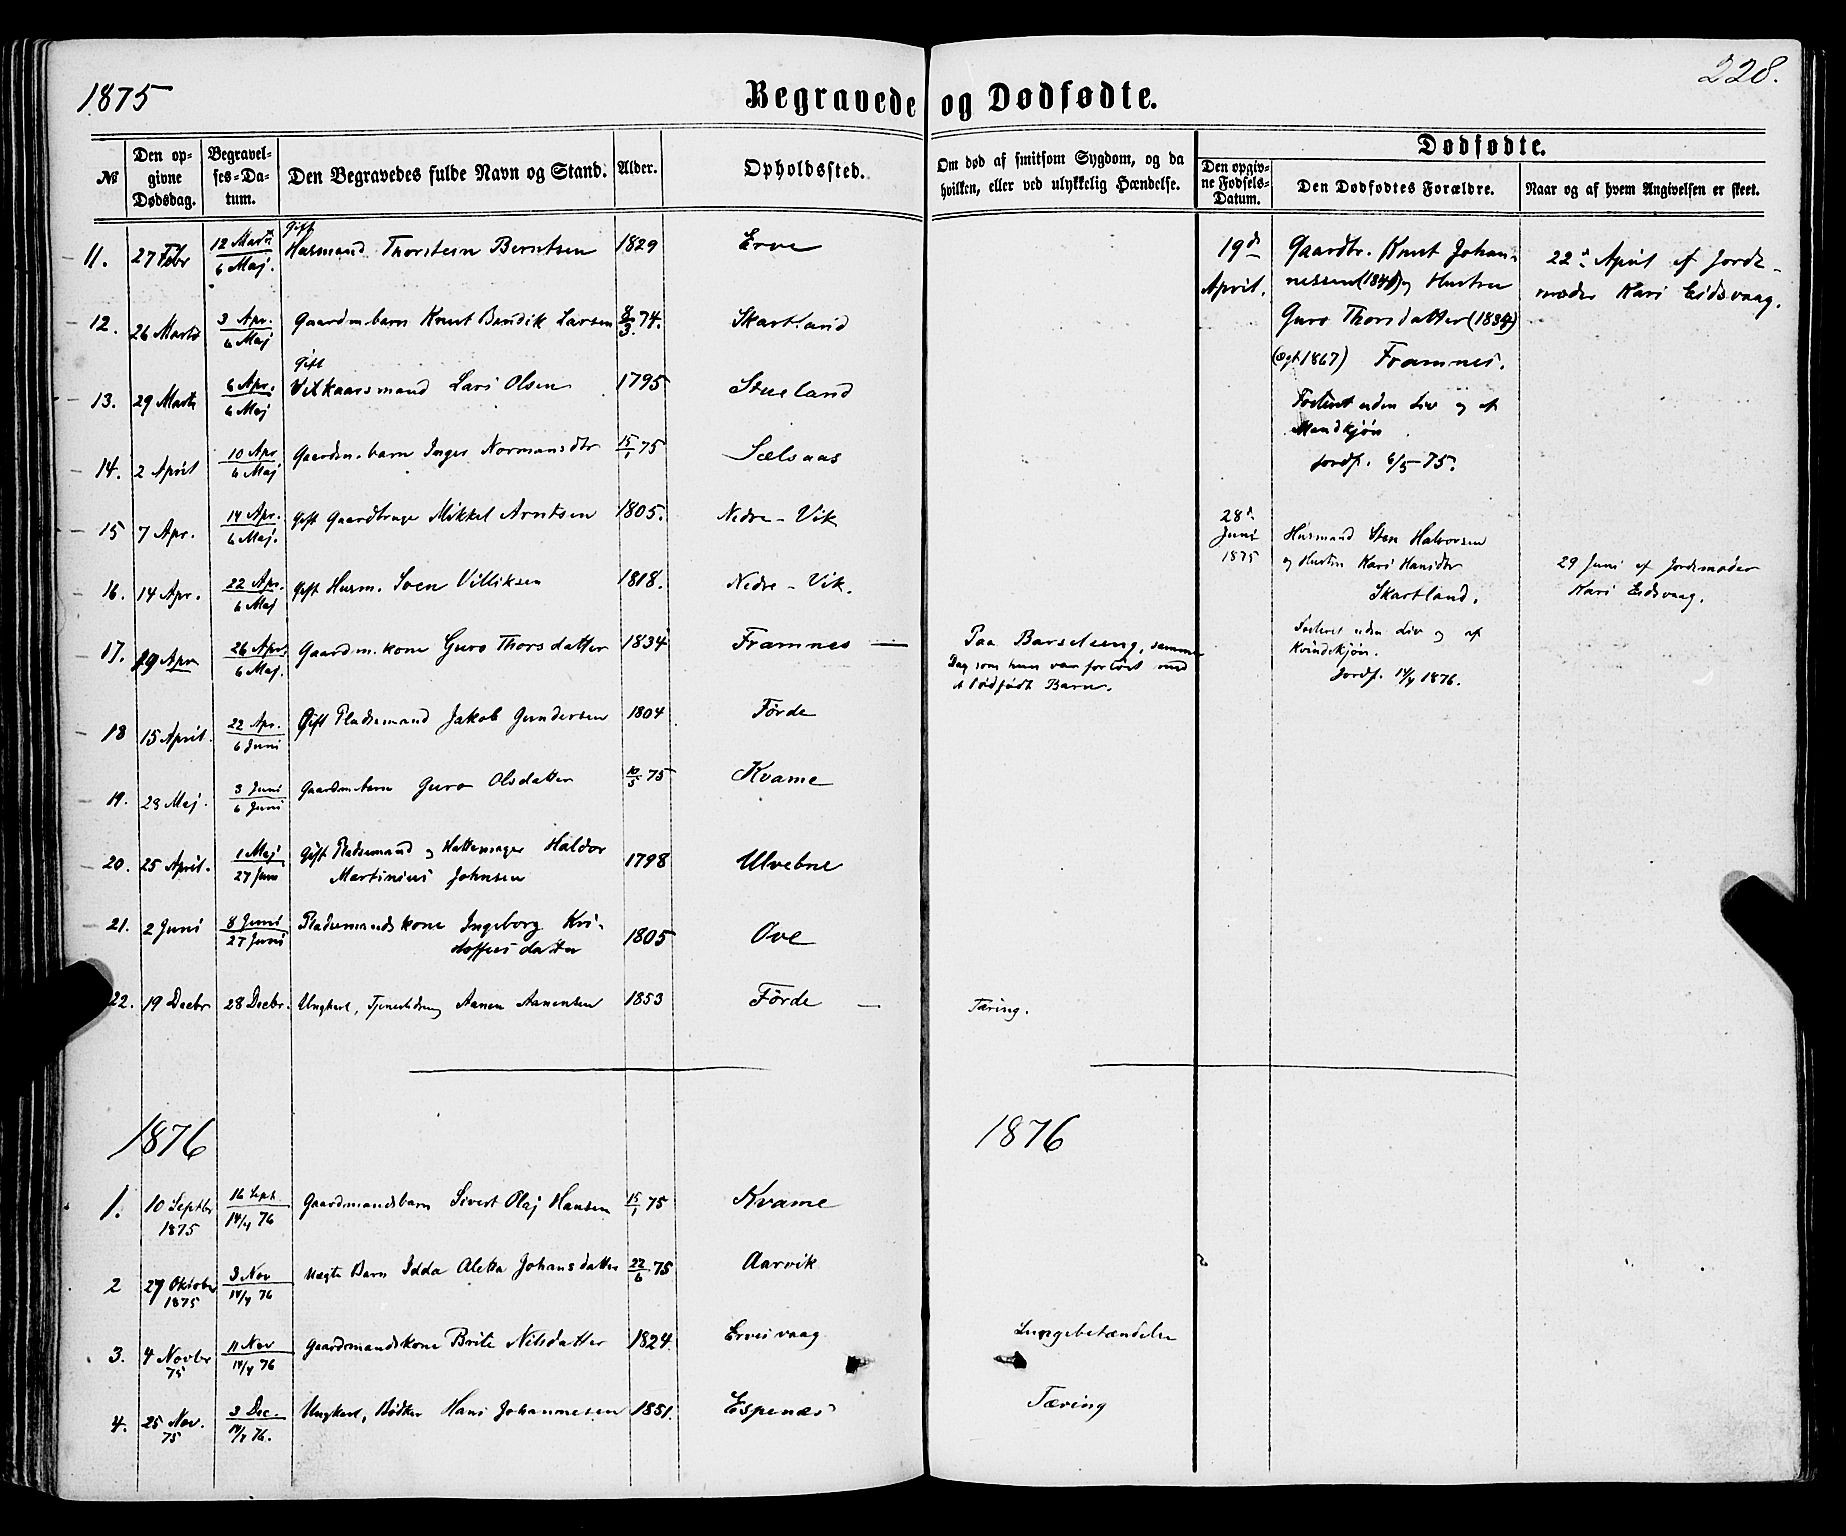 1875
Begravede og Dødfødte.
228.
№
Den opgivne Dødsdag.
Begravelses-Datum.
Den Begravedes fulde Navn og Stand.
Alder.
Opholdssted.
Om død af smitsom Sygdom, og da hvilken, eller ved ulykkelig Hændelse.
Dødfødte.
Den opgivne Fødsels-Datum.
Den Dødfødtes Forældre.
Naar og af hvem Angivelsen er skeet.
11. 27 Febr 12 Marts 6 Maj. Gift Husmand Thorstein Berntsen 1829 Erve
12. 26 Marts 3 Apr. 6 Maj Gaardm.barn Knut Bendik Larsen 8/3. 74. Skartland
13. 29 Marts 6 Apr. 6 Maj Gift Vilkaarsmand Lars Olsen 1795 Stueland
14. 2 April 10 Apr 6 Maj Gaardm.barn Inger Normansdtr 15/1 75 Sælsaas
15 7 Apr. 14 Apr. 6 Maj. Gift Gaardbruger Mikkel Arntsen 1805. Nedre-Vik
16. 14 Apr. 22 Apr. 6 Maj Gift Husm. Soen Villiksen 1818. Nedre-Vik.
17. 19 Apr 26 Apr. 6 Maj. Gaardm.kone Guro Thorsdatter 1834 Framnes — Paa Barselseng, samme
Dag som hun var forløst med
et dødfødt Barn.
18 15 April. 22 Apr. 6 Juni Gift Pladsemand Jakob Gundersen 1804 Førde
19. 23 Maj. 3 Juni 6 Juni Gaardm.barn Guro Olsdatter 10/5 75 Kvame
20. 25 April. 1 Maj 27 Juni Gift Pladsemand og Hattemager Haldor
Martinius Johnsen 1798 Ulvebne
21. 2 Juni 8 Juni 27 Juni Pladsemandskone Ingeborg Kri-
stoffersdatter 1805 Ove
22. 19 Decbr 28 Decbr. Ungkarl, Tjenestedreng Aanen Aanensen 1853 Førde — Tæring.
19de
April.
Gaardbr. Knut Johan-
nessen (1840) og Hustru
Guro Thorsdatter (1834)
(Ægt. 1867) Framnes.
Fostret uden Liv og af
Mandkjøn.
Jordf. 6/5 75.
22de April af Jorde-
moder Kari Eidsvaag.
28de
Juni
1875
Husmand Sten Halvorsen
og Hustru Kari Hansdtr
Skartland.
Fostret uden Liv og af
Kvindekjøn.
Jordf. 14/4 1876.
29 Juni af Jordemoder
Kari Eidsvaag.
1876
1876
1. 10 Septbr 1875 16 Sept. 14/4 76 Gaardmandsbarn Sivert Olaj Hansen 15/1 75 Kvame
2 27 Oktober 1875 3 Nov 14/4 76 Uægte Barn Idda Aletta Johansdatter 22/6 75 Aarvik
3. 4 Novbr 75 11 Nov 14/4 76 Gaardmandskone Brite Nilsdatter 1824. Ervesvaag Lungebetændelse
4. 25 Nov. 75 3 Dec. 14/4 76. Ungkarl, Bødker Hans Johannesen 1851. Espenæs Tæring